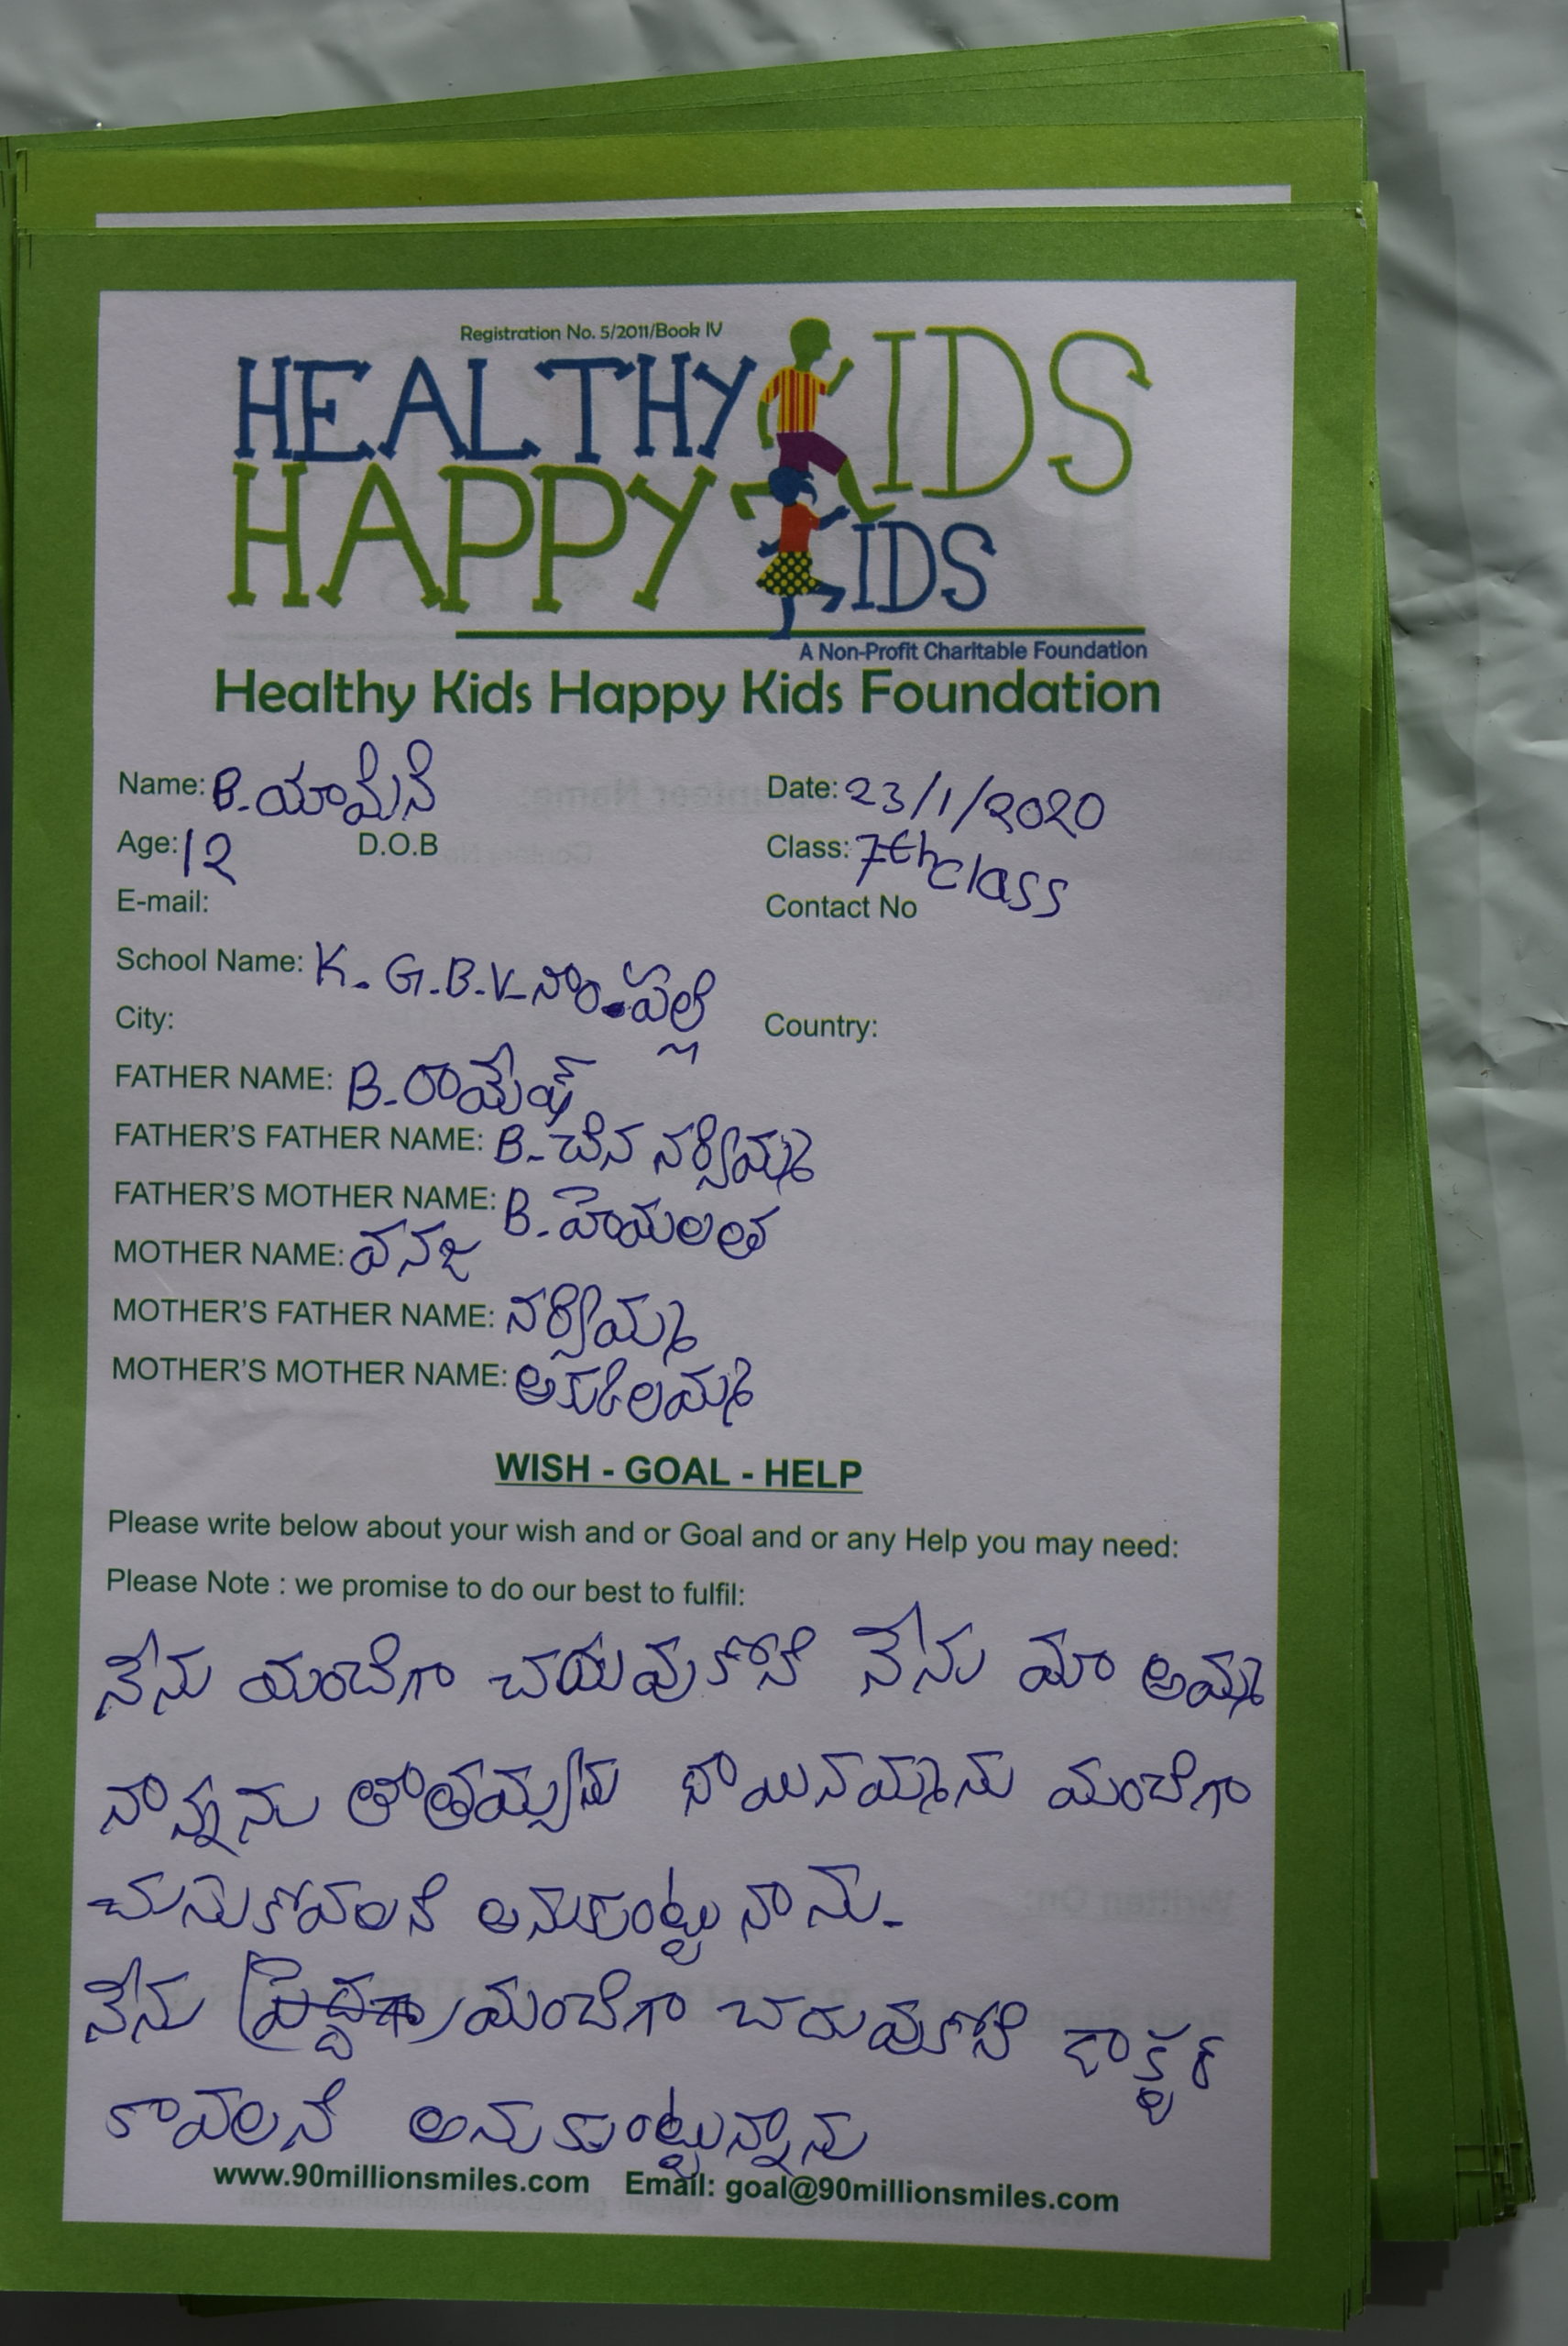 Registration No. 5/2011/Book IV
HEALTHY KIDS
HAPPY KIDS
A Non-Profit Charitable Foundation
Healthy Kids Happy Kids Foundation
Name: B. యామిని Date: 23/1/2020
Age: 12 D.O.B Class: 7th class
E-mail: Contact No
School Name: K. G.B.V. నాం.పల్లి
City: Country:
FATHER NAME: B. రామేష్
FATHER'S FATHER NAME: B. చిన నర్సిమ్మ
FATHER'S MOTHER NAME: B. హేమలత
MOTHER NAME: వనజ
MOTHER'S FATHER NAME: నర్సిమ్మ
MOTHER'S MOTHER NAME:
WISH - GOAL - HELP
Please write below about your wish and or Goal and or any Help you may need:
Please Note : we promise to do our best to fulfil:
నేను మంచిగా చదువుకోని నేను మా అమ్మ
నాన్నను నాయినమ్మను మంచిగా
చునుకోవలని అనుకుంట్టునాను.
నేను మంచిగా చదువుకోని డాక్టర్
కావలని అనుకుంట్టున్నాను
www.90millionsmiles.com Email: goal@90millionsmiles.com